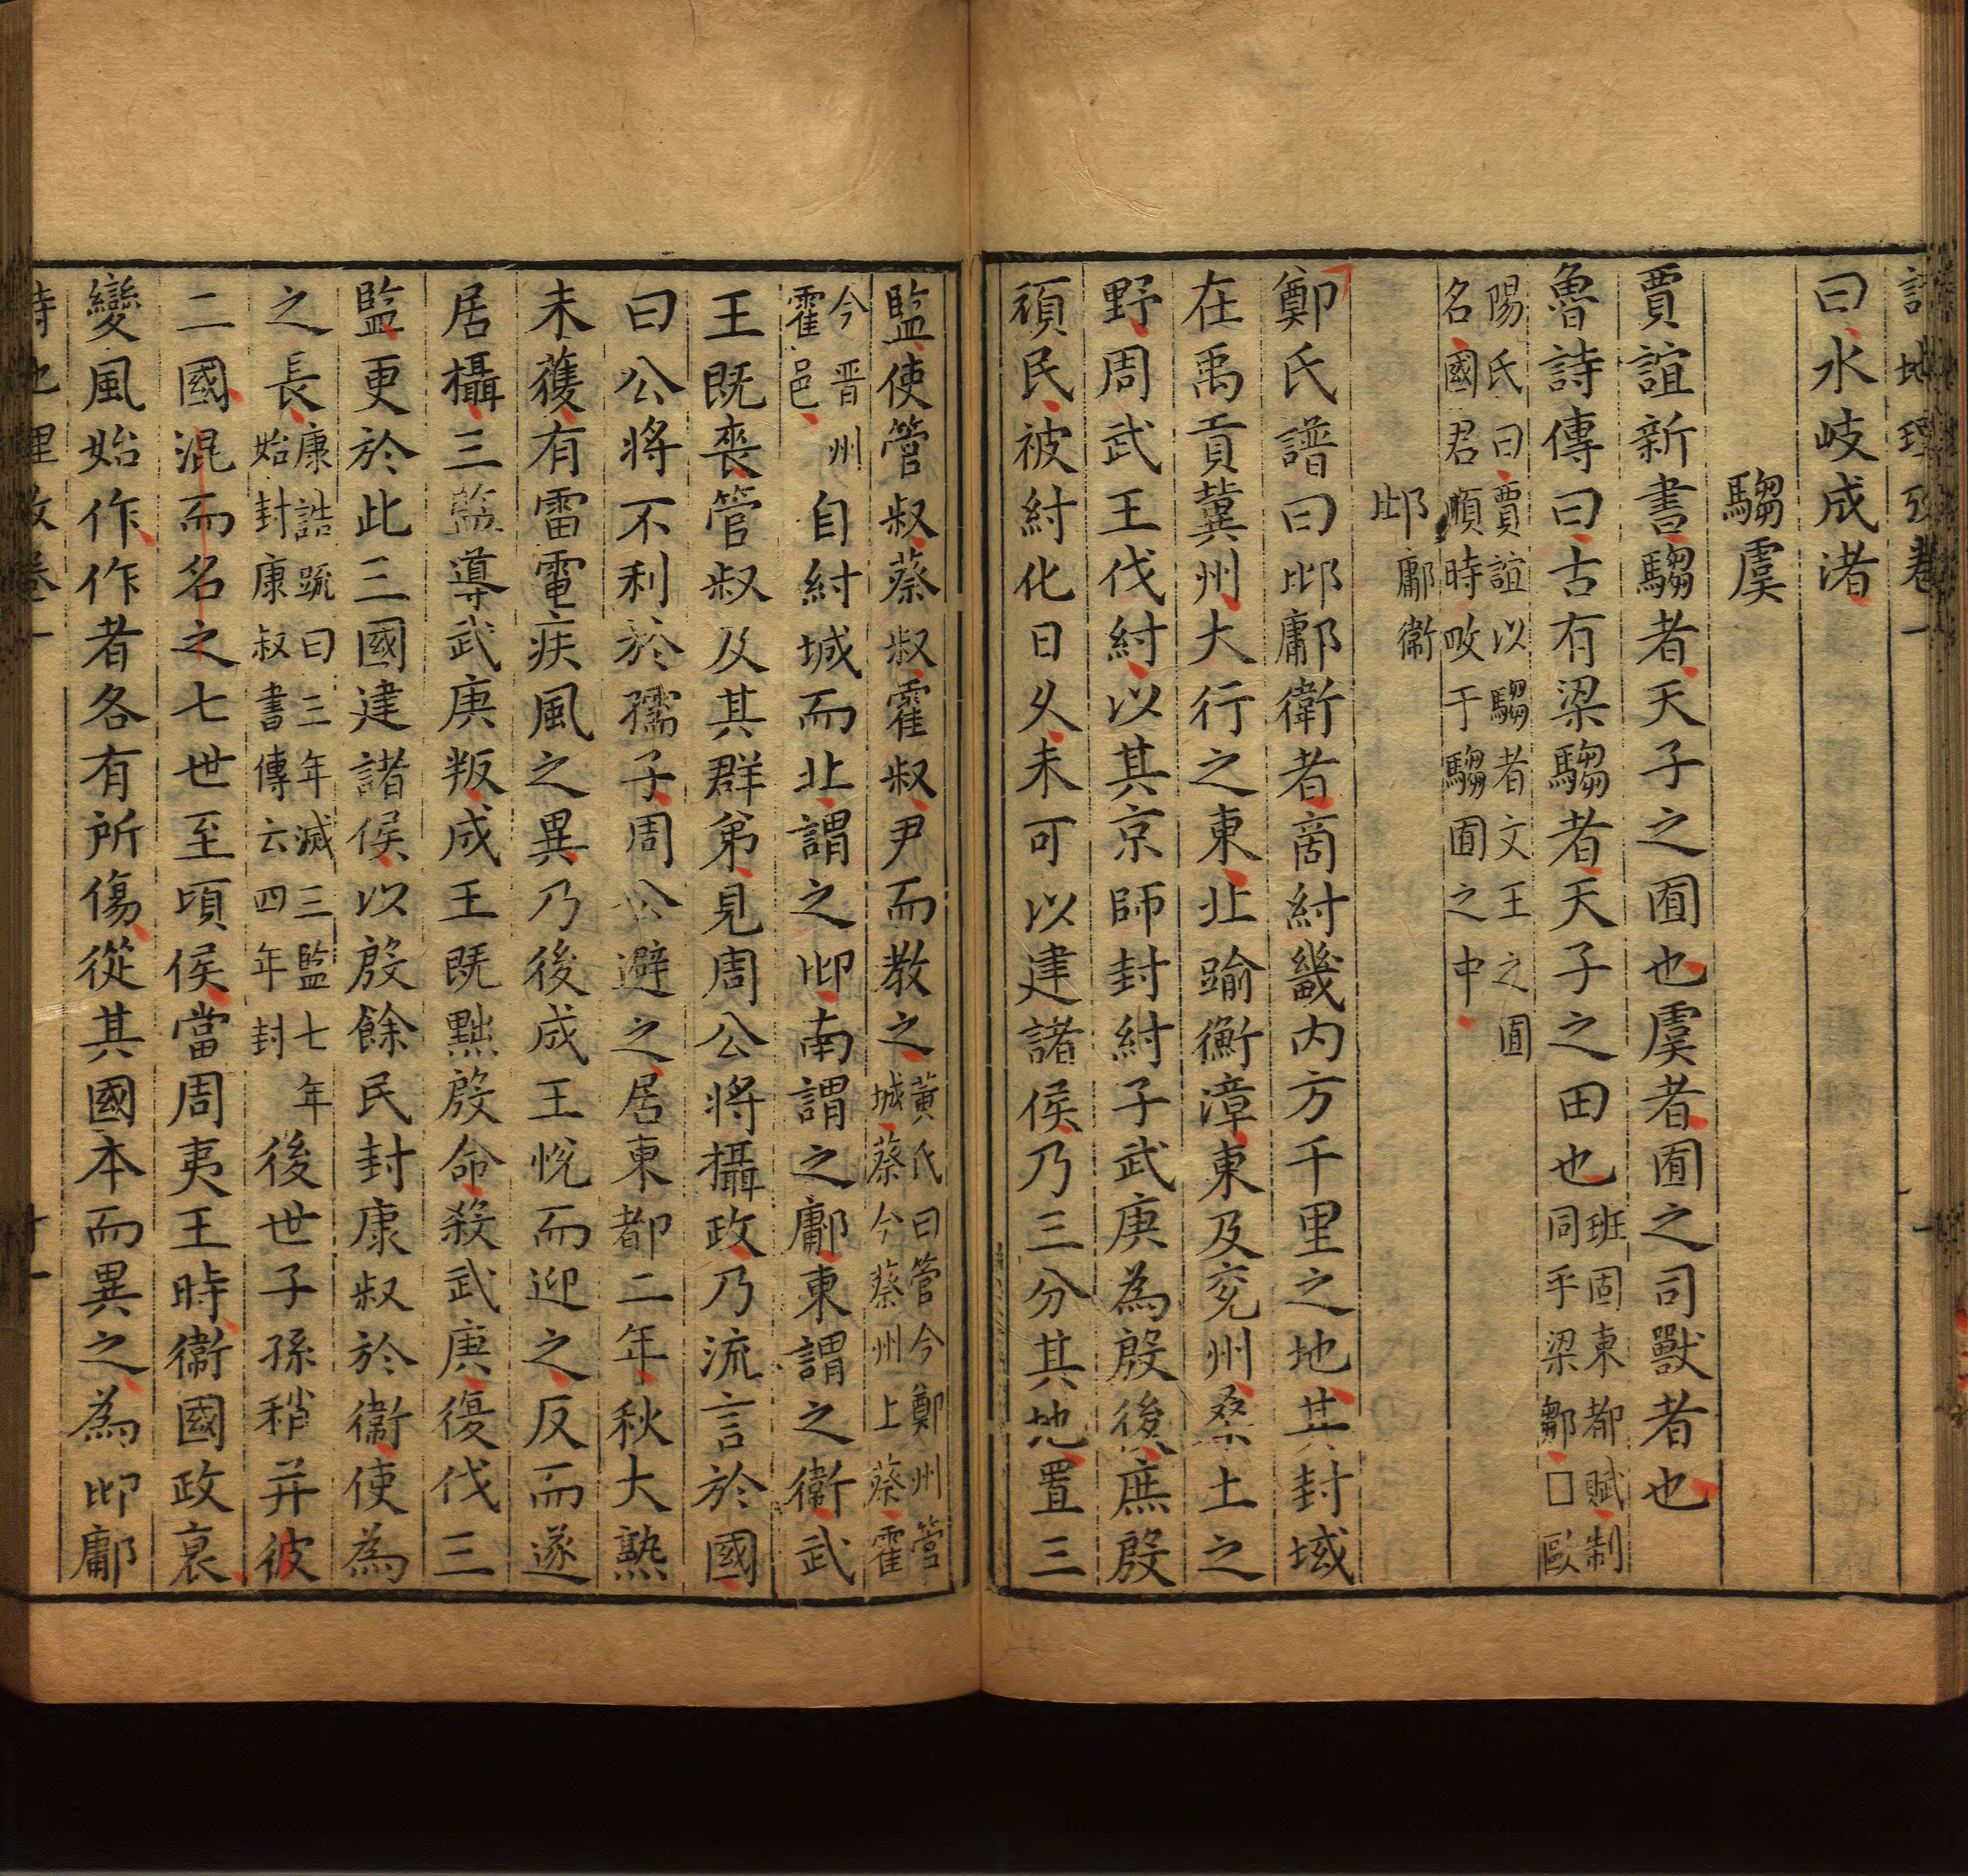 詩地理攷卷一
曰水岐成渚
騶虞
賈誼新書騶者天子之囿也虞者囿之司獸者也
魯詩傳曰古有梁騶者天子之田也班固東都賦制同乎梁鄒□歐
陽氏曰賈誼以騶者文王之囿名國君順時畋于騶囿之中
邶鄘衞
鄭氏譜曰邶鄘衛者商紂畿内方千里之地其封域
在禹貢冀州大行之東北踰衡漳東及兖州桑土之
野周武王伐紂以其京師封紂子武庚為殷後庶殷
頑民被紂化日乆未可以建諸侯乃三分其地置三
監使管叔蔡叔霍叔尹而教之黄氏曰管今鄭州管城蔡今蔡州上蔡霍
今晋州霍邑自紂城而北謂之邶南謂之鄘東謂之衛武
王既喪管叔及其群弟見周公將攝政乃流言於國
曰公將不利於孺子周公避之居東都二年秋大熟
未穫有雷電疾風之異乃後成王悅而迎之反而遂
居攝三監導武庚叛成王既黜殷命殺武庚復伐三
監更於此三國建諸侯以殷餘民封康叔於衞使為
之長康誥疏曰三年滅三監七年始封康叔書傳云四年封後世子孫稍并彼
二國混而名之七世至頃侯當周夷王時衞國政衰
變風始作作者各有所傷從其國本而異之為邶鄘
詩地理攷卷一
十一